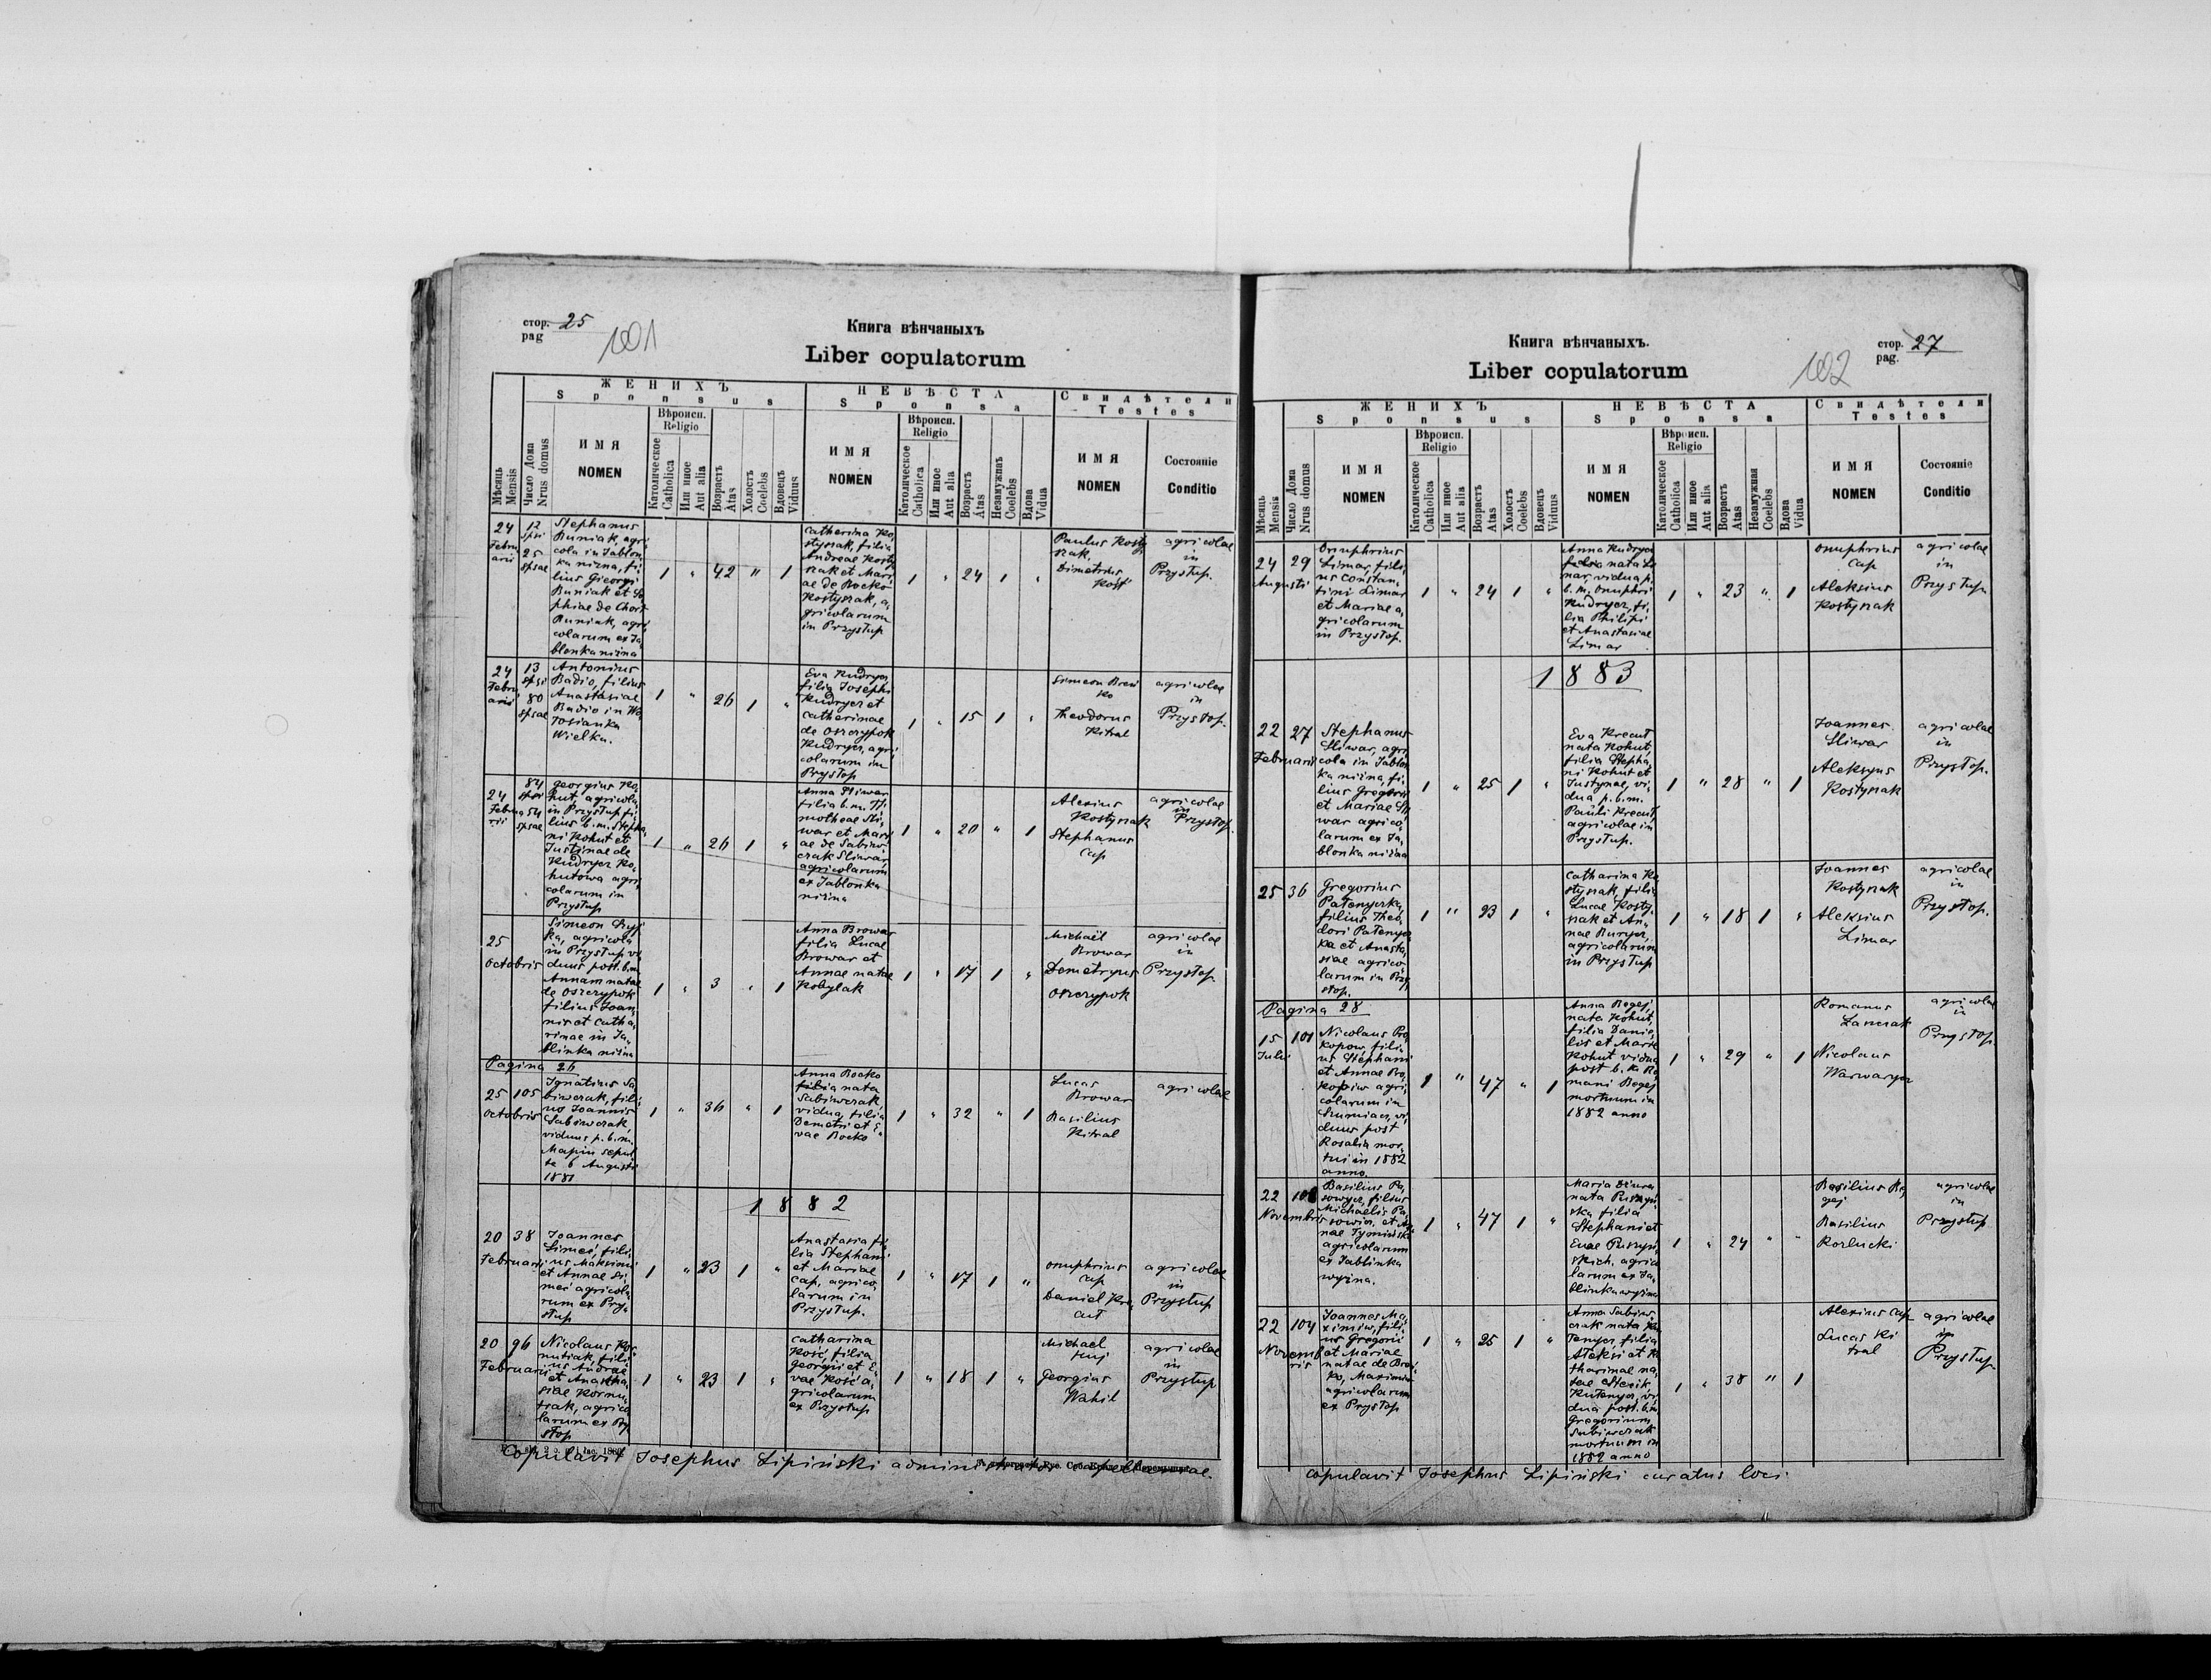 стор. 25
pag
101
Книга вѣнчаныхъ
Liber copulatorum
Мѣсяць
Mensis
Число Дома
Nrus domus
ЖЕНИХЪ
Sponsus
ИМЯ
NOMEN
Вѣроисп.
Religio
Католическое
Catholica
Или иное
Aut alia
Возрасть
Atas
Холость
Coelebs
Вдовець
Viduus
НЕВѢСТА
Sponsa
ИМЯ
NOMEN
Вѣроисп.
Religio
Католическое
Catholica
Или иное
Aut alia
Возрасть
Atas
Незамужнаъ
Coelebs
Вдова
Vidua
Свидѣтели
Testes
ИМЯ
NOMEN
Состояніе
Conditio
24
Febru
arii
12
spsi
25
spsae
Stephanus
Buniak, agri
cola in Jablon
ka nizna, fi
lius Gieorgi
Buniak et So
phiae de Chort
Buniak, agri
colarum ex Ja
blonka nizna
1 " 42 " 1
Catherina Ko
styszak, filia
Andreae Kosty
szak et Mari
ae de Bocko
Kostyszak, a
gricolarum
in Przystup
1 " 24 1 "
Paulus Kosty
szak
Dimetrius
Kość
agricolae
in
Przystup.
24
Febru
arii
13
spsi
80
spsae
Antonius
Badio, filius
Anastasiae
Badio in Wo
łosianka
Wielka.
1 " 26 1 "
Eva Kudrycz
filia Josephi
Kudrycz et
Catherinae
de Oszczypok
Kudrycz, agri
colarum in
Przystop
1 " 15 1 "
Simeon Breń
ko
Theodorus
Kitral
agricolae
in
Przystop.
24
Februa
rii
84
spsi
54
spsae
Georgius Ko
hut, agricola
in Przystup fi
lius b.m. Stepha
ni Kohut et
Justinae de
Kudrycz Ko
hutowa agri
colarum in
Przystup
1 " 26 1 "
Anna Sliwar
filia b.m. Ti
motheae Sli
war et Mari
ae de Sabiw
czak Sliwar
agricolarum
ex Jablonka
nizna
1 " 20 " 1
Alexius
Kostyszak
Stephanus
Cap
agricolae
in
Przystop.
25
Octobris
Simeon
ka, agricola
in Przystup vi
duus post. b.m.
Annam natae
de Oszczypok
filius Joan
nis et Catha
rinae in Ja
blinka nizna
1 " 3 " 1
Anna Browar
filia Lucae
Browar et
Annae natae
Kobylak
1 " 17 1 "
Michaël
Browar
Demetryus
Oszczypok
agricolae
in
Przystop
Pagina 26
25
Octobris
105
Ignatius Sa
biwczak, fili
us Joannis
Sabiwczak,
viduus p.b.m.
Mariu sepul
ta 6 Augusti
1881
1 " 36 " 1
Anna Bocko
filia nata
Sabiwczak,
vidua, filia
Demetri et E
vae Bocko
1 " 32 " 1
Lucas
Browar
Basilius
Kitral
agricolae
1882
20
Februarii
38
Joannes
Simeś, fili
us Maksimi
et Annae Si
meś agricola
rum ex Przy
stup
1 " 23 1 "
Anastasia fi
lia Stephani
et Mariae
Cap, agrico
larum in
Przystup.
1 " 17 1 "
Onuphrius
Cap
Daniel Kre
cut
agricolae
in
Przystup
20
Februarii
96
Nicolaus Kor
nutiak, fili
us Andreae
et Anasta
siae Kornu
tiak, agrico
larum ex Przy
stop
1 " 23 1 "
Catharina
Kość, filia
Georgii et E
vae Kość a
gricolarum
ex Przystup
1 " 18 1 "
Michael
Kuj
Georgius
Wahil
agricolae
in
Przystup
Copulavit Josephus Lipiński administrator capellaniae.
стор. 27
pag.
102
Книга вѣнчаныхъ.
Liber copulatorum
Мѣсяць
Mensis
Число Дома
Nrus domus
ЖЕНИХЪ
Sponsus
ИМЯ
NOMEN
Вѣроисп.
Religio
Католическое
Catholica
Или иное
Aut alia
Возрасть
Atas
Холость
Coelebs
Вдовець
Viduus
НЕВѢСТА
Sponsa
ИМЯ
NOMEN
Вѣроисп.
Religio
Католическое
Catholica
Или иное
Aut alia
Возрасть
Atas
Незамужная
Coelebs
Вдова
Vidua
Свидѣтели
Testes
ИМЯ
NOMEN
Состояніе
Conditio
24
Augusti
29
Onuphrius
Limar, fili
us Constan
tini Limar
et Mariae a
gricolarum
in Przystop.
1 " 24 1 "
Anna Kudrycz
nata Li
mar, vidua p.
b.m. Onuphri
Kudrycz, fi
lia Philipi
et Anastasiae
Limar
1 " 23 " 1
Onuphrius
Cap
Aleksius
Kostyszak
agricolae
in
Przystup
1883
22
Februarii
27
Stephanus
Sliwar, agri
cola in Jablon
ka nizna, fi
lius Gregorii
et Mariae Sli
war agrico
larum ex Ja
blonka nizna
1 " 25 1 "
Eva Krecut
nata Kohut,
filia Stepha
ni Kohut et
Justynae, vi
dua p.b.m.
Pauli Krecut
agricolae in
Przystup.
1 " 28 " 1
Joannes
Sliwar
Aleksyus
Kostyszak
agricolae
in
Przystop.
25 36
Gregorius
Patenyczka
filius Theo
dori Patenycz
ka et Anasta
siae agrico
larum in Przy
stop.
1 " 23 1 "
Catharina Ko
styszak, filia
Lucae Kosty
szak et An
nae Burycz,
agricolarum
in Przystup
1 " 18 1 "
Joannes
Kostyszak
Aleksius
Limar
agricolae
in
Przystop.
Pagina 28
15
Julii
101
Nicolaus Pro
kopow, fili
us Stephani
et Annae Pro
kopiw agri
colarum in
vi
duus post
Rosalia mor
tui in 1882
anno.
1 " 47 " 1
Anna Begej
nata Kohut,
filia Danie
lis et Mariae
Kohut vidua
post b. m. Ro
mani Begej
mortuum in
1882 anno
1 " 29 " 1
Romanus
Nicolaus
Warwarycz
agricolae
in
Przystop
22
Novembris
Basilius Pa
sowycz, filius
Michaelis Pa
sowicz, et An
nae Tymiński
agricolarum
ex Jablinka
wyzna.
1 " 47 1 "
Maria
nata
ska filia
Stephani et
Evae
skich, agrico
larum ex Ja
blinka wyzna
1 " 24 " "
Basilius Be
gej
Basilius
Kozlucki
agricolae
in
Przystup
22
Novemb
ris
104
Joannes Ma
ximiw, fili
us Gregorii
et Mariae
natae de Breń
ko, Maximiw
agricolarum
ex Przystop
1 " 25 1 "
Anna Sabiw
czak nata Ku
tenycz, filia
Aleksi et Ka
tharinae na
tae
Kutenycz, vi
dua post. b.m.
Gregorium
Sabiwczak
mortuum in
1882 anno
1 " 38 " 1
Alexius Cap
Lucas Ki
tral
agricolae
in
Przystup.
Copulavit Josephus Lipiński curatus loci.